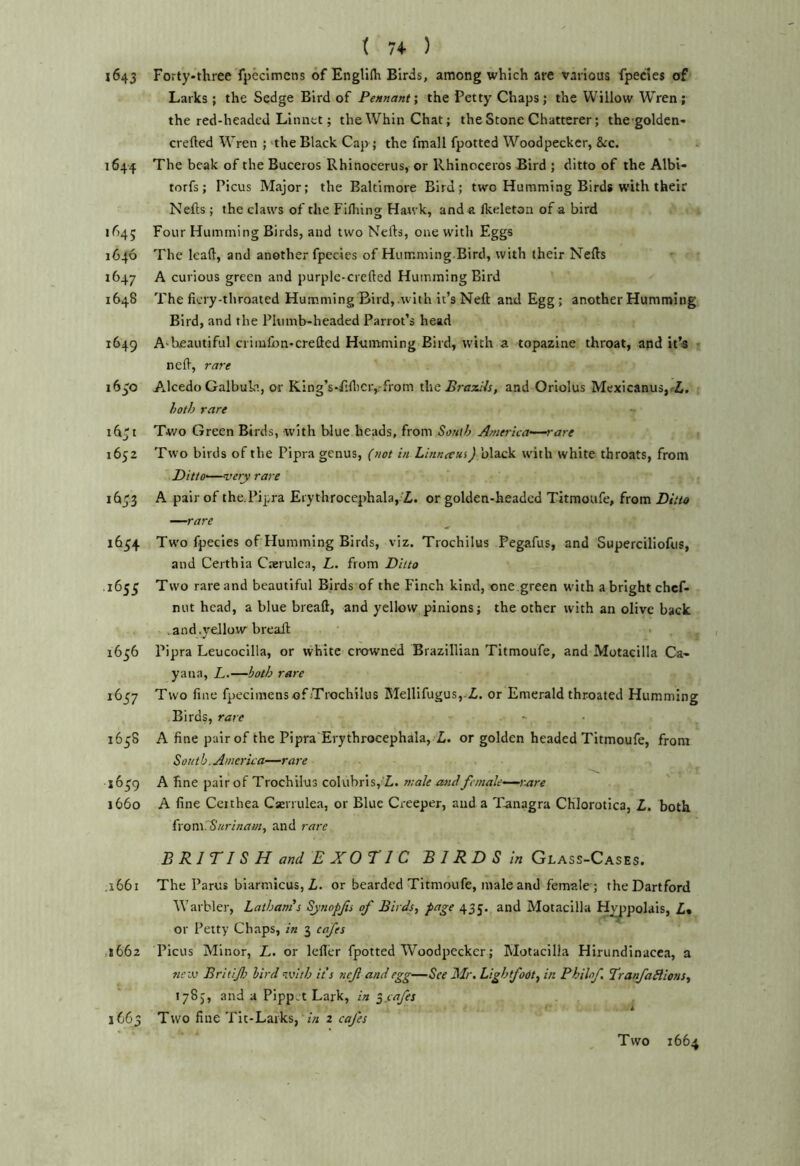 ( 74 )
1643 Forty-three ſpecimens of Engliſh Birds, among which are various ſpecies of
Larks; the Sedge Bird of Pennant; the Petty Chaps; the Willow Wren;
the red-headed Linnet; the Whin Chat; the Stone Chatterer; the golden-
creſted Wren; the Black Cap; the ſmall ſpotted Woodpecker, &c.
1644 The beak of the Buceros Rhinocerus, or Rhinoceros Bird; ditto of the Albi-
torfs; Picus Major; the Baltimore Bird; two Humming Birds with their
Neſts; the claws of the Fiſhing Hawk, and a ſkeleton of a bird
1645 Four Humming Birds, and two Neſts, one with Eggs
1646 The leaſt, and another ſpecies of Humming Bird, with their Neſts
1647 A curious green and purple-creſted Humming Bird
1648 The fiery-throated Humming Bird, with it's Neſt and Egg; another Humming
Bird, and the Plumb-headed Parrot's head
1649 A beautiful crimſon-creſted Humming Bird, with a topazine throat, and it's
neſt, rare
1650 Alcedo Galbula, or King's-fiſher, from the Brazils, and Oriolus Mexicanus, L.
both rare
1651 Two Green Birds, with blue heads, from South America—rare
1652 Two birds of the Pipra genus, (not in Linnæus) black with white throats, from
Ditto—very rare
1653 A pair of the Pipra Erythrocephala, L. or golden-headed Titmouſe, from Ditto
—rare
1654 Two ſpecies of Humming Birds, viz. Trochilus Pegaſus, and Superciliofus,
and Certhia Cærulea, L. from Ditto
1655 Two rare and beautiful Birds of the Finch kind, one green with a bright cheſ-
nut head, a blue breaſt, and yellow pinions; the other with an olive back
and yellow breaſt
1656 Pipra Leucocilla, or white crowned Brazillian Titmouſe, and Motacilla Ca-
yana, L.—both rare
1657 Two fine ſpecimens of Trochilus Mellifugus, L. or Emerald throated Humming
Birds, rare
1658 A fine pair of the Pipra Erythrocephala, L. or golden headed Titmouſe, from
South America—rare
1659 A fine pair of Trochilus colubris, L. male and female—rare
1660 A fine Ceithea Cærrulea, or Blue Creeper, and a Tanagra Chlorotica, L. both
from Surinam, and rare
BRITISH and EXOTIC BIRDS in GLASS-CASES.
1661 The Parus biarmicus, L. or bearded Titmouſe, male and female; the Dartford
Warbler, Latham's Synopſis of Birds, page 435. and Motacilla Hyppolais, L.
or Petty Chaps, in 3 caſes
1662 Picus Minor, L. or leſſer ſpotted Woodpecker; Motacilla Hirundinacea, a
new Britiſh bird with it's neſt and egg—See Mr. Lightfoot, in Philoſ. Tranſactions,
1785, and a Pippet Lark, in 3 caſes
1663 Two fine Tit-Larks, in 2 caſes
Two 1664